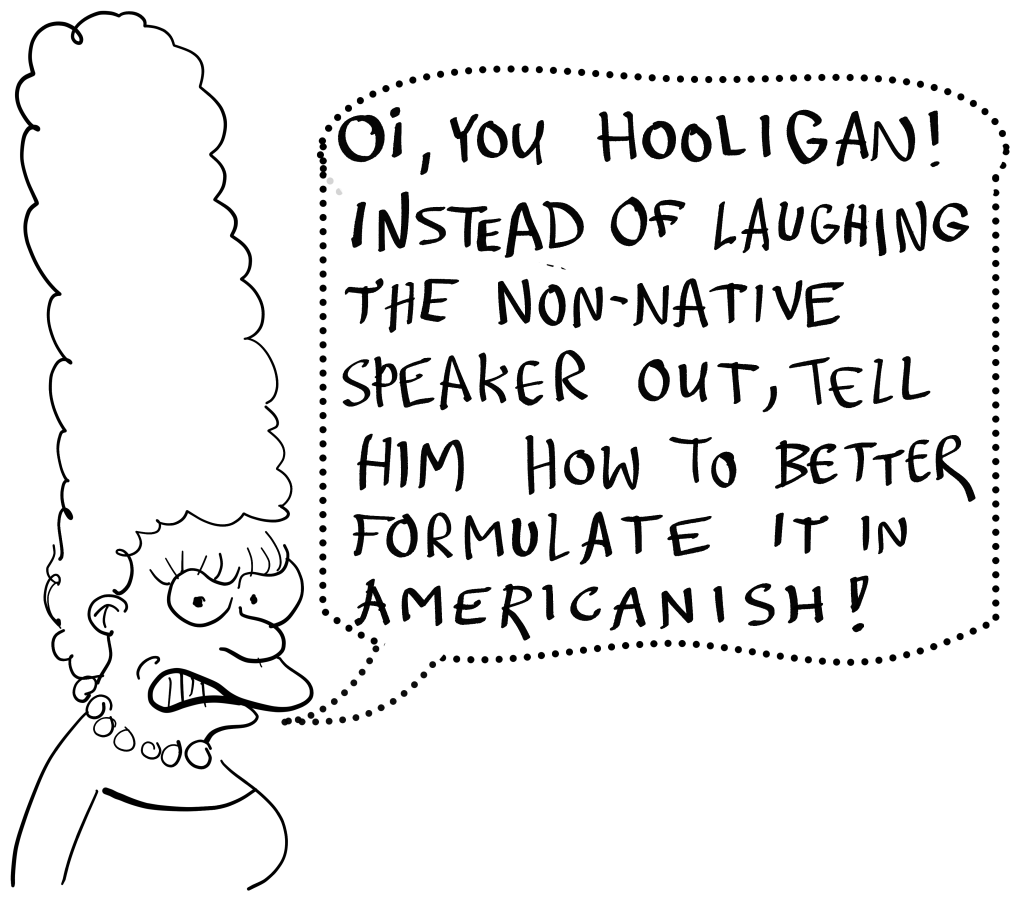 Oi, YOU HOOLIGAN!
INSTEAD OF LAUGHING
THE NON-NATIVE
SPEAKER OUT, TELL
HIM HOW TO BETTER
FORMULATE IT IN
AMERICANISH!